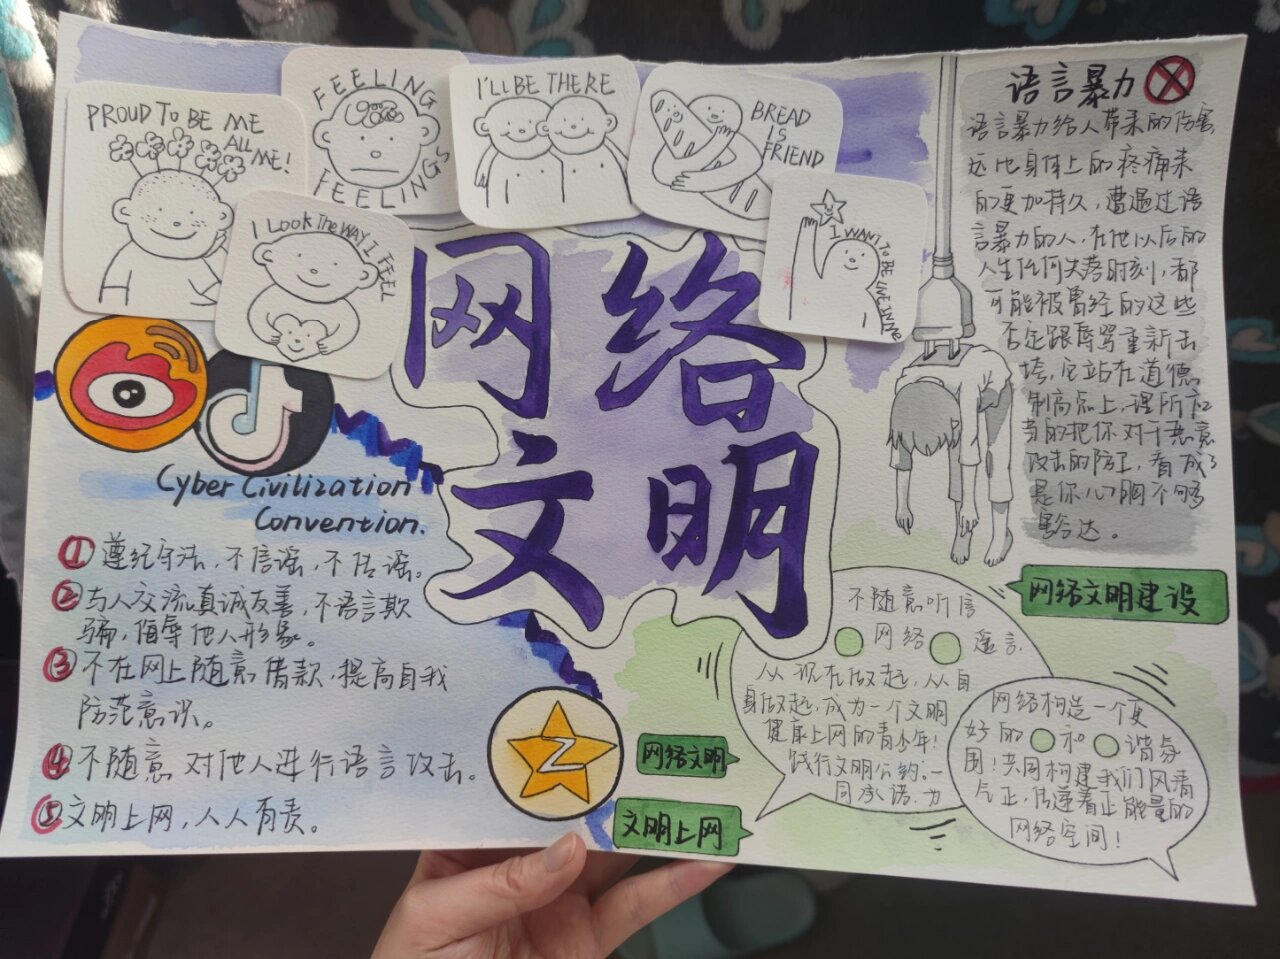 PROUD TO BE ME
ALL
ME!
FEELING
FEELINGS
I LOOK THE WAY I FEEL
I'LL BE THERE
BREAD
IS
FRIEND
I WANT TO BE
网络
文明
Cyber Civilization
Convention.
① 遵纪守法,不信谣,不传谣。
② 与人交流真诚友善,不语言欺
骗,侮辱他人形象。
③ 不在网上随意借款,提高自我
防范意识。
④ 不随意对他人进行语言攻击。
⑤ 文明上网,人人有责。
语言暴力
语言暴力给人带来的伤害,
远比身体上的疼痛来
的更加持久,遭遇过语
言暴力的人,在他以后的
人生任何失落时刻,都
可能被曾经的这些
否定跟辱骂重新击
垮,它站在道德
制高点上,理所应
当的把你对于恶意
攻击的防卫,看成了
是你心胸不够
豁达。
网络文明建设
不随意听信
网络 谣言.
从现在做起,从自
身做起,成为一个文明
健康上网的青少年!
践行文明公约.一
同承诺.为
网络构造一个更
好的 和 谐氛
围!共同构建我们风清
气正,传递着正能量的
网络空间!
网络文明
文明上网